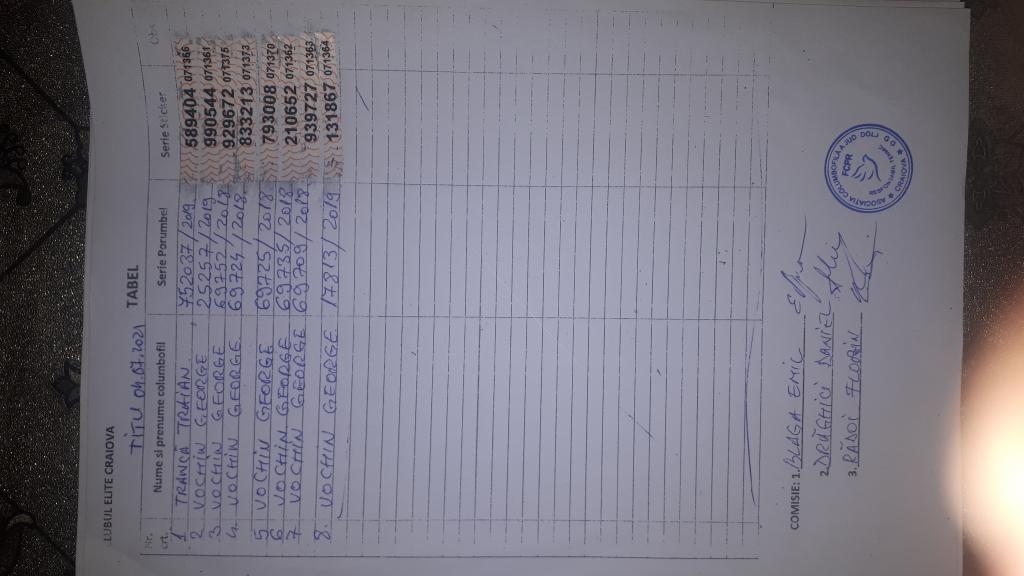 LUBUL ELITE CRAIOVA
TITU 04.07.2021 TABEL
Nr. crt. Nume si prenume columbofil Serie Porumbel Serie Sticker Obs
1 TRANCĂ TRAIAN 752037/2019 589404 071366
2 VOCHIN GEORGE 25257/2019 990544 071361
3 VOCHIN GEORGE 69752/2018 929672 071376
4 VOCHIN GEORGE 69724/2018 833213 071373
5 VOCHIN GEORGE 69725/2018 793008 071370
6 VOCHIN GEORGE 69735/2018 210652 071362
7 VOCHIN GEORGE 69709/2018 939727 071363
8. VOCHIN GEORGE 17813/2019 131867 071364
COMISIE: 1. BLAGA EMIL
2. DRĂGHICI DANIEL
3. RĂDOI FLORIN
ASOCIATIA COLUMBOFILĂ A JUD DOLJ
FCPR
CRAIOVA